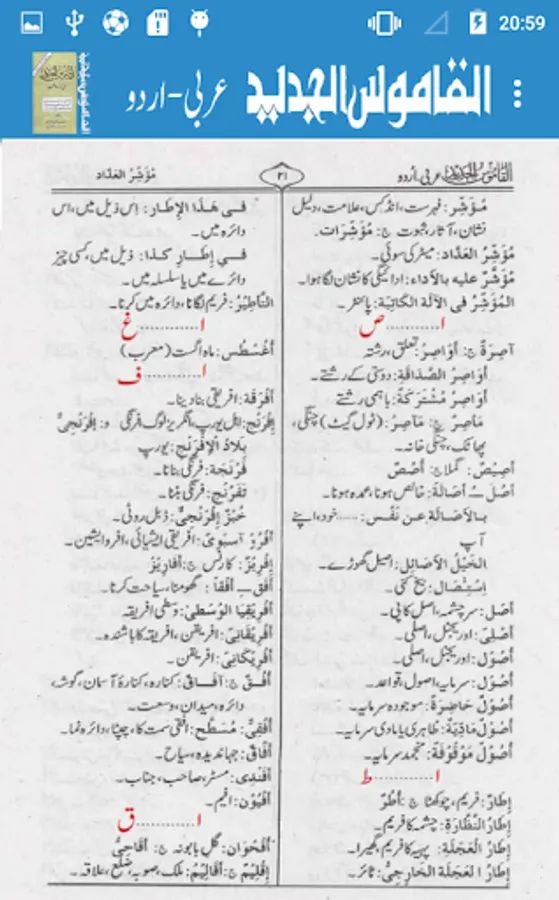 20:59
القاموس الجدید
عربی-اردو
القاموس الجدید عربی، اردو
۲۱
مُؤَشِّرُ العَدَّاد
مُؤَشِّر: فہرست، انڈکس، علامت، دلیل
نشان، آثار، ثبوت ج: مُؤَشِّرَات.
مُؤَشِّرُ العَدَّاد: میٹر کی سوئی۔
مُؤَشَّر علیه بالأداء: ادائیگی کا نشان لگا ہوا۔
المُؤَشِّر فی الآلة الکاتبة: پائنٹر۔
ا............ص
آصِرَة ج: أَوَاصِر: تعلق، رشتہ
أَوَاصِرُ الصَّدَاقَة: دوستی کے رشتے۔
أَوَاصِرُ مُشْتَرَکَة: باہمی رشتے
مَأْصِر ج: مَآصِر: (ٹول گیٹ) چنگی،
پھاٹک، چنگی خانہ۔
أَصِیْص: گملا ج: أُصُص
أَصُلَ ـُ أَصَالَة: خالص ہونا، عمدہ ہونا۔
بالأصَالَة عن نَفْس: ---خود، اپنے
آپ
الخَیْلُ الأَصَائِل: اصیل گھوڑے۔
إِسْتِئْصَال: بیخ کنی۔
أَصْل: سرچشمہ، اصل کاپی۔
أَصْلِیّ: اوریجنل، اصلی۔
أُصُوْل: اوریجنل، اصلی۔
أُصُوْل: سرمایہ، اصول، قواعد۔
أُصُوْل حَاضِرَة: موجودہ سرمایہ۔
أُصُوْل مَادِّیَّة: ظاہری یا مادی سرمایہ۔
أُصُوْل مَوْقُوْفَة: منجمد سرمایہ۔
ا............ط
إِطَار: فریم، چوکھٹا ج: أُطُر
إِطَارُ النَّظَّارَة: چشمہ کا فریم۔
إِطَارُ العَجَلَة: پہیے کا فریم، گھیرا۔
إِطَارُ العَجَلَة الخَارِجِیّ: ٹائر۔
فِی هَذَا الإِطَار: اس ذیل میں، اس
دائرہ میں۔
فِی إِطَارِ کَذَا: ذیل میں، کسی چیز
دائرے میں یا سلسلہ میں۔
التَّأْطِیْر: فریم لگانا، دائرہ میں کرنا۔
ا............غ
أُغُسْطُس: ماہ اگست (معرب)
ا............ف
أَفْرَقَة: افریقی بنا دینا۔
إِفْرَنْج: اہل یورپ، انگریز لوگ، فرنگی و: إِفْرَنْجِیّ
بِلَادُ الإِفْرَنْج: یورپ
فَرْنَجَة: فرنگی بنانا۔
تَفَرْنُج: فرنگی بننا۔
خُبْز إِفْرَنْجِیّ: ڈبل روٹی۔
أَفْرُو آسَیَوِیّ: افریقی ایشیائی، افروایشین۔
إِفْرِیْز: کارنس ج: أَفَارِیْز
أَفَقَ ـِ أَفْقًا: گھومنا، سیاحت کرنا۔
أَفْرِیْقِیَا الوُسْطیٰ: وسطی افریقہ
أَفْرِیْقَانِیّ: افریقن، افریقہ کا باشندہ۔
أَفْرِیْکَانِیّ: افریقن۔
أُفُق ج: آفَاق: کنارہ، کنارۂ آسمان، گوشہ،
دائرہ، میدان، وسعت۔
أُفُقِیّ: مُسَطَّح: افقی سمت کا، چپٹا، دائرہ نما۔
آفَاقِیّ: جہاندیدہ، سیاح۔
أَفَنْدِی: مسٹر، صاحب، جناب۔
أَفْیُوْن: افیم۔
ا............ق
أُقْحُوَان: گل بابونہ ج: أَقَاحِیّ
إِقْلِیْم ج: أَقَالِیْم: ملک، صوبہ، ضلع، علاقہ۔